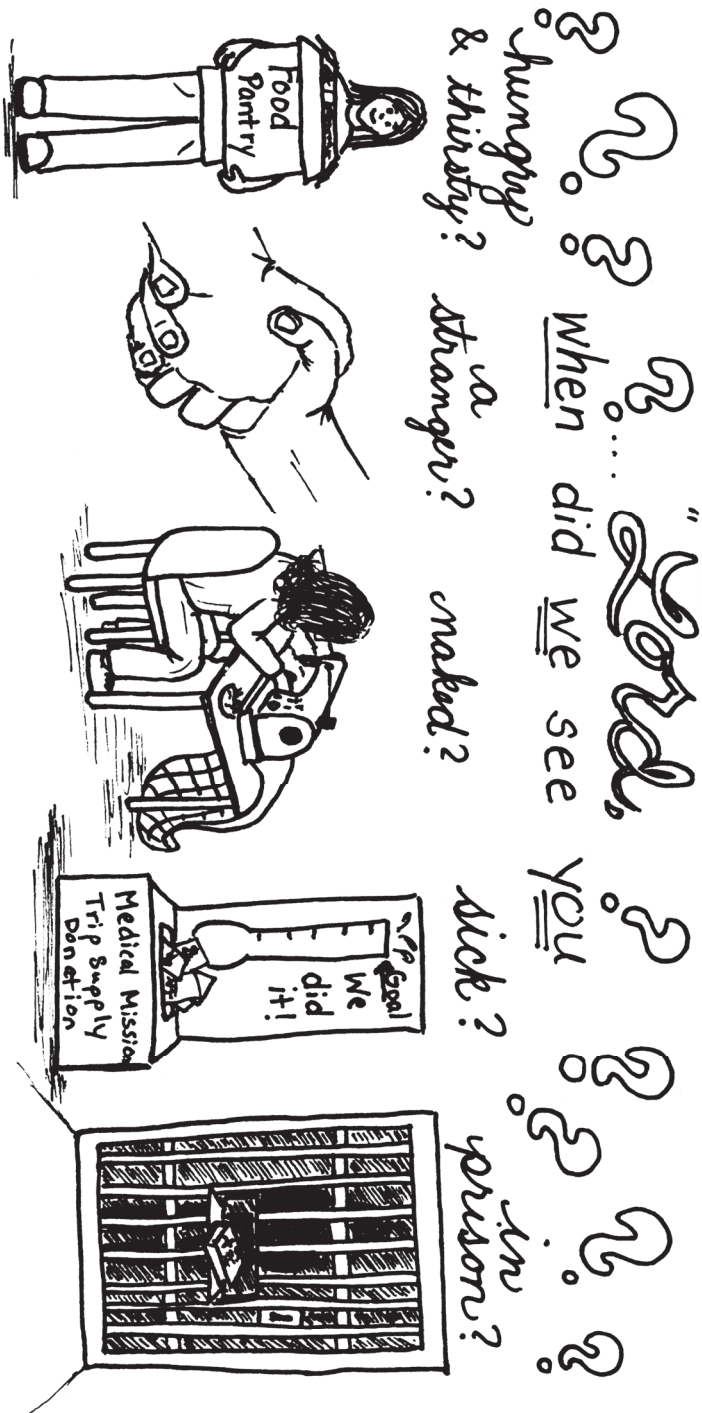 ? ? ? ? .... "Lord, ? ? ? ? ?
when did we see you
hungry
& thirsty?
a
stranger?
naked?
sick?
in
prison?
Food
Pantry
Goal
We
did
it!
Medical Mission
Trip Supply
Donation